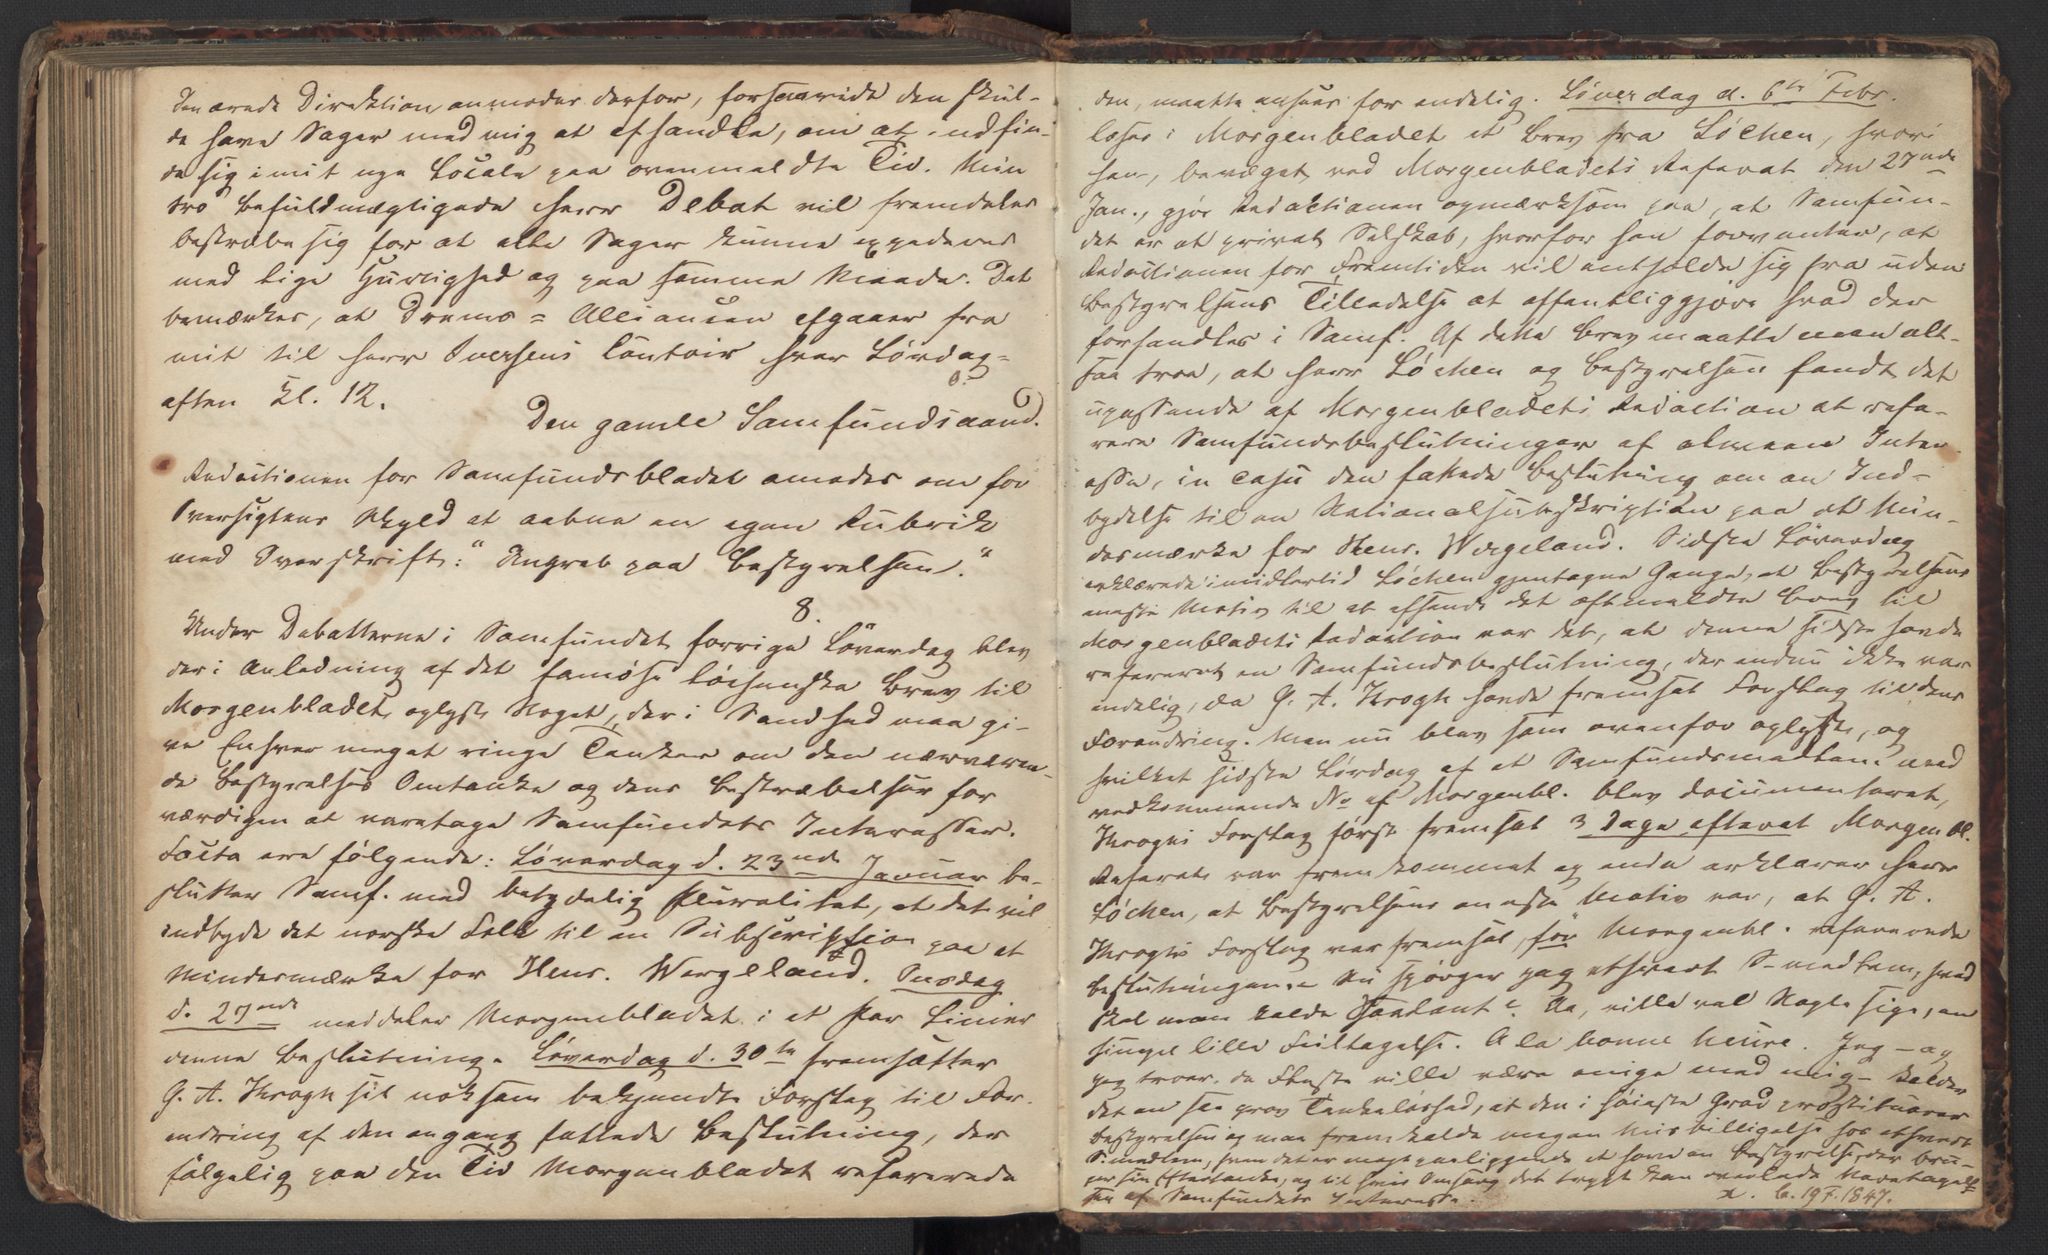 Den ærede Direktion anmodes derfor, forsaavidt den skul-
de have Sager med mig at afhandle, om at indfin-
de sig i mit nye Locale paa ovenmeldte Tid. Min
tro befuldmægtigede Herr Debat vil fremdeles
bestræbe sig for at alle Sager kunne expederes
med lige Hurtighed og paa samme Maade. Det
bemærkes, at Drams-Alliancen afgaaer fra
mit til Herr Iversens Contoir hver Lørdag-
aften Kl. 12.
Den gamle Samfundsaand.
Redactionen for Samfundsbladet amodes om for
Oversigtens Skyld at aabne en egen Rubrik
med Overskrift: "Angreb paa Bestyrelsen."
8.
Under Debatterne i Samfundet forrige Løverdag blev
der i Anledning af det famøse Løchenske Brev til
Morgenbladet oplyst Noget, der i Sandhed maa gi-
ve Enhver meget ringe Tanker om den nærværen-
de Bestyrelses Omtanke og dens Bestræbelser for
værdigen at varetage Samfundets Interesser.
Facta ere følgende: Løverdag d. 23nde Januar be-
slutter Samf. med betydelig Pluralitet, at det vil
indbyde det norske Folk til en Subscription paa et
Mindesmærke for Henr. Wergeland. Onsdag
d. 27nde meddeler Morgenbladet i et Par Linier
denne Beslutning. Løverdag d. 30te fremsætter
G. A. Krogh sit noksom bekjendte Forslag til For-
andring af den engang fattede Beslutning, der
følgelig paa den Tid Morgenbladet refererede
den, maatte ansees for endelig. Løverdag d. 6te Febr.
læses i Morgenbladet et Brev fra Løchen, hvori
han, bevæget ved Morgenbladets Referat den 27nde
Jan., gjør Redactionen opmærksom paa, at Samfun-
det er et privat Selskab, hvorfor han forventer, at
Redactionen for Fremtiden vil entholde sig fra uden
Bestyrelsens Tilladelse at offentliggjøre hvad der
forhandles i Samf. Af dette Brev maatte man alt-
saa troe, at Herr Løchen og Bestyrelsen fandt det
upassende af Morgenbladets Redaction at refe-
rere Samfundsbeslutninger af almeen Inter-
esse, in casu den fattede Beslutning om en Ind-
bydelse til en Nationalsubskription paa et Min-
desmærke for Henr. Wergeland. Sidste Løverdag
erklærede imidlertid Løchen gjentagne Gange, at Bestyrelsens
eneste Motiv til at afsende det ovenmeldte Brev til
Morgenbladets Redaction var det, at denne sidste havde
refereret en Samfundsbeslutning, der endnu ikke var
endelig, da G. A. Krogh havde fremsat Forslag til dens
Forandring. Men nu blev som ovenfor oplyst, og
hvilket sidste Lørdag af et Samfundsmedlem med
vedkommende No af Morgenbl. blev documenteret,
Kroghs Forslag først fremsat 3 Dage efterat Morgenbl.
Referat var fremkommet og enda erklærer Herr
Løchen, at Bestyrelsens eneste Motiv var, at G. A.
Kroghs Forslag var fremsat, før Morgenbl. refererede
Beslutningen. Nu spørger jeg ethvert S-medlem, hvad
skal man kalde Saadant? Aa, ville vel Nogle sige, en
simpel lille Feiltagelse. A la bonne heure. Jeg - og
jeg troer de Fleste ville være enige med mig - kalder
det en saa grov Tankeløshed, at den i høieste Grad prostituerer
Bestyrelsen og maa fremkalde megen Misbilligelse hos ethvert
S-medlem, hvem det er magtpaaliggende at have en Bestyrelse, der bru-
ger sin Eftertanke, og til hvis Omsorg det trygt kan overlade Varetagel-
sen af Samfundets Interesse.
x. b. 19 F. 1847.